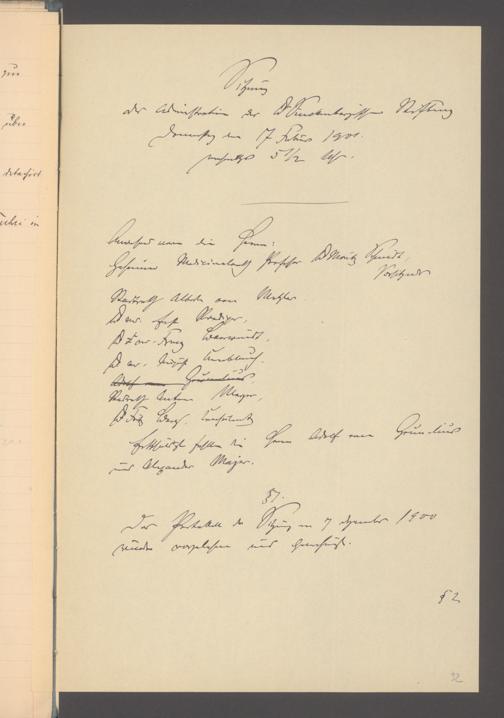 Sitzung
der Administration der Dr Senckenbergischen Stiftung
Donnerstag den 17 1901.
nachmittags 5 1/2 Uhr.
Anwesend waren die Herren:
Geheimer Medicinalrath Professor Dr Moritz Schmidt,
Vorsitzender
Stadtrath Albert von Metzler
Dr med. Ernst Roediger,
Dr
Dr
Adolf von Grunelius,
Stadtrath Anton Meyer,
Dr Fritz Berg, Consulent
Entschuldigt fehlten die Herren Adolf von Grunelius
und Alexander Majer.
§1.
Das Protokoll der Sitzung vom 7 December 1900
wurde vorgelesen und genehmigt.
§ 2
92
über
in